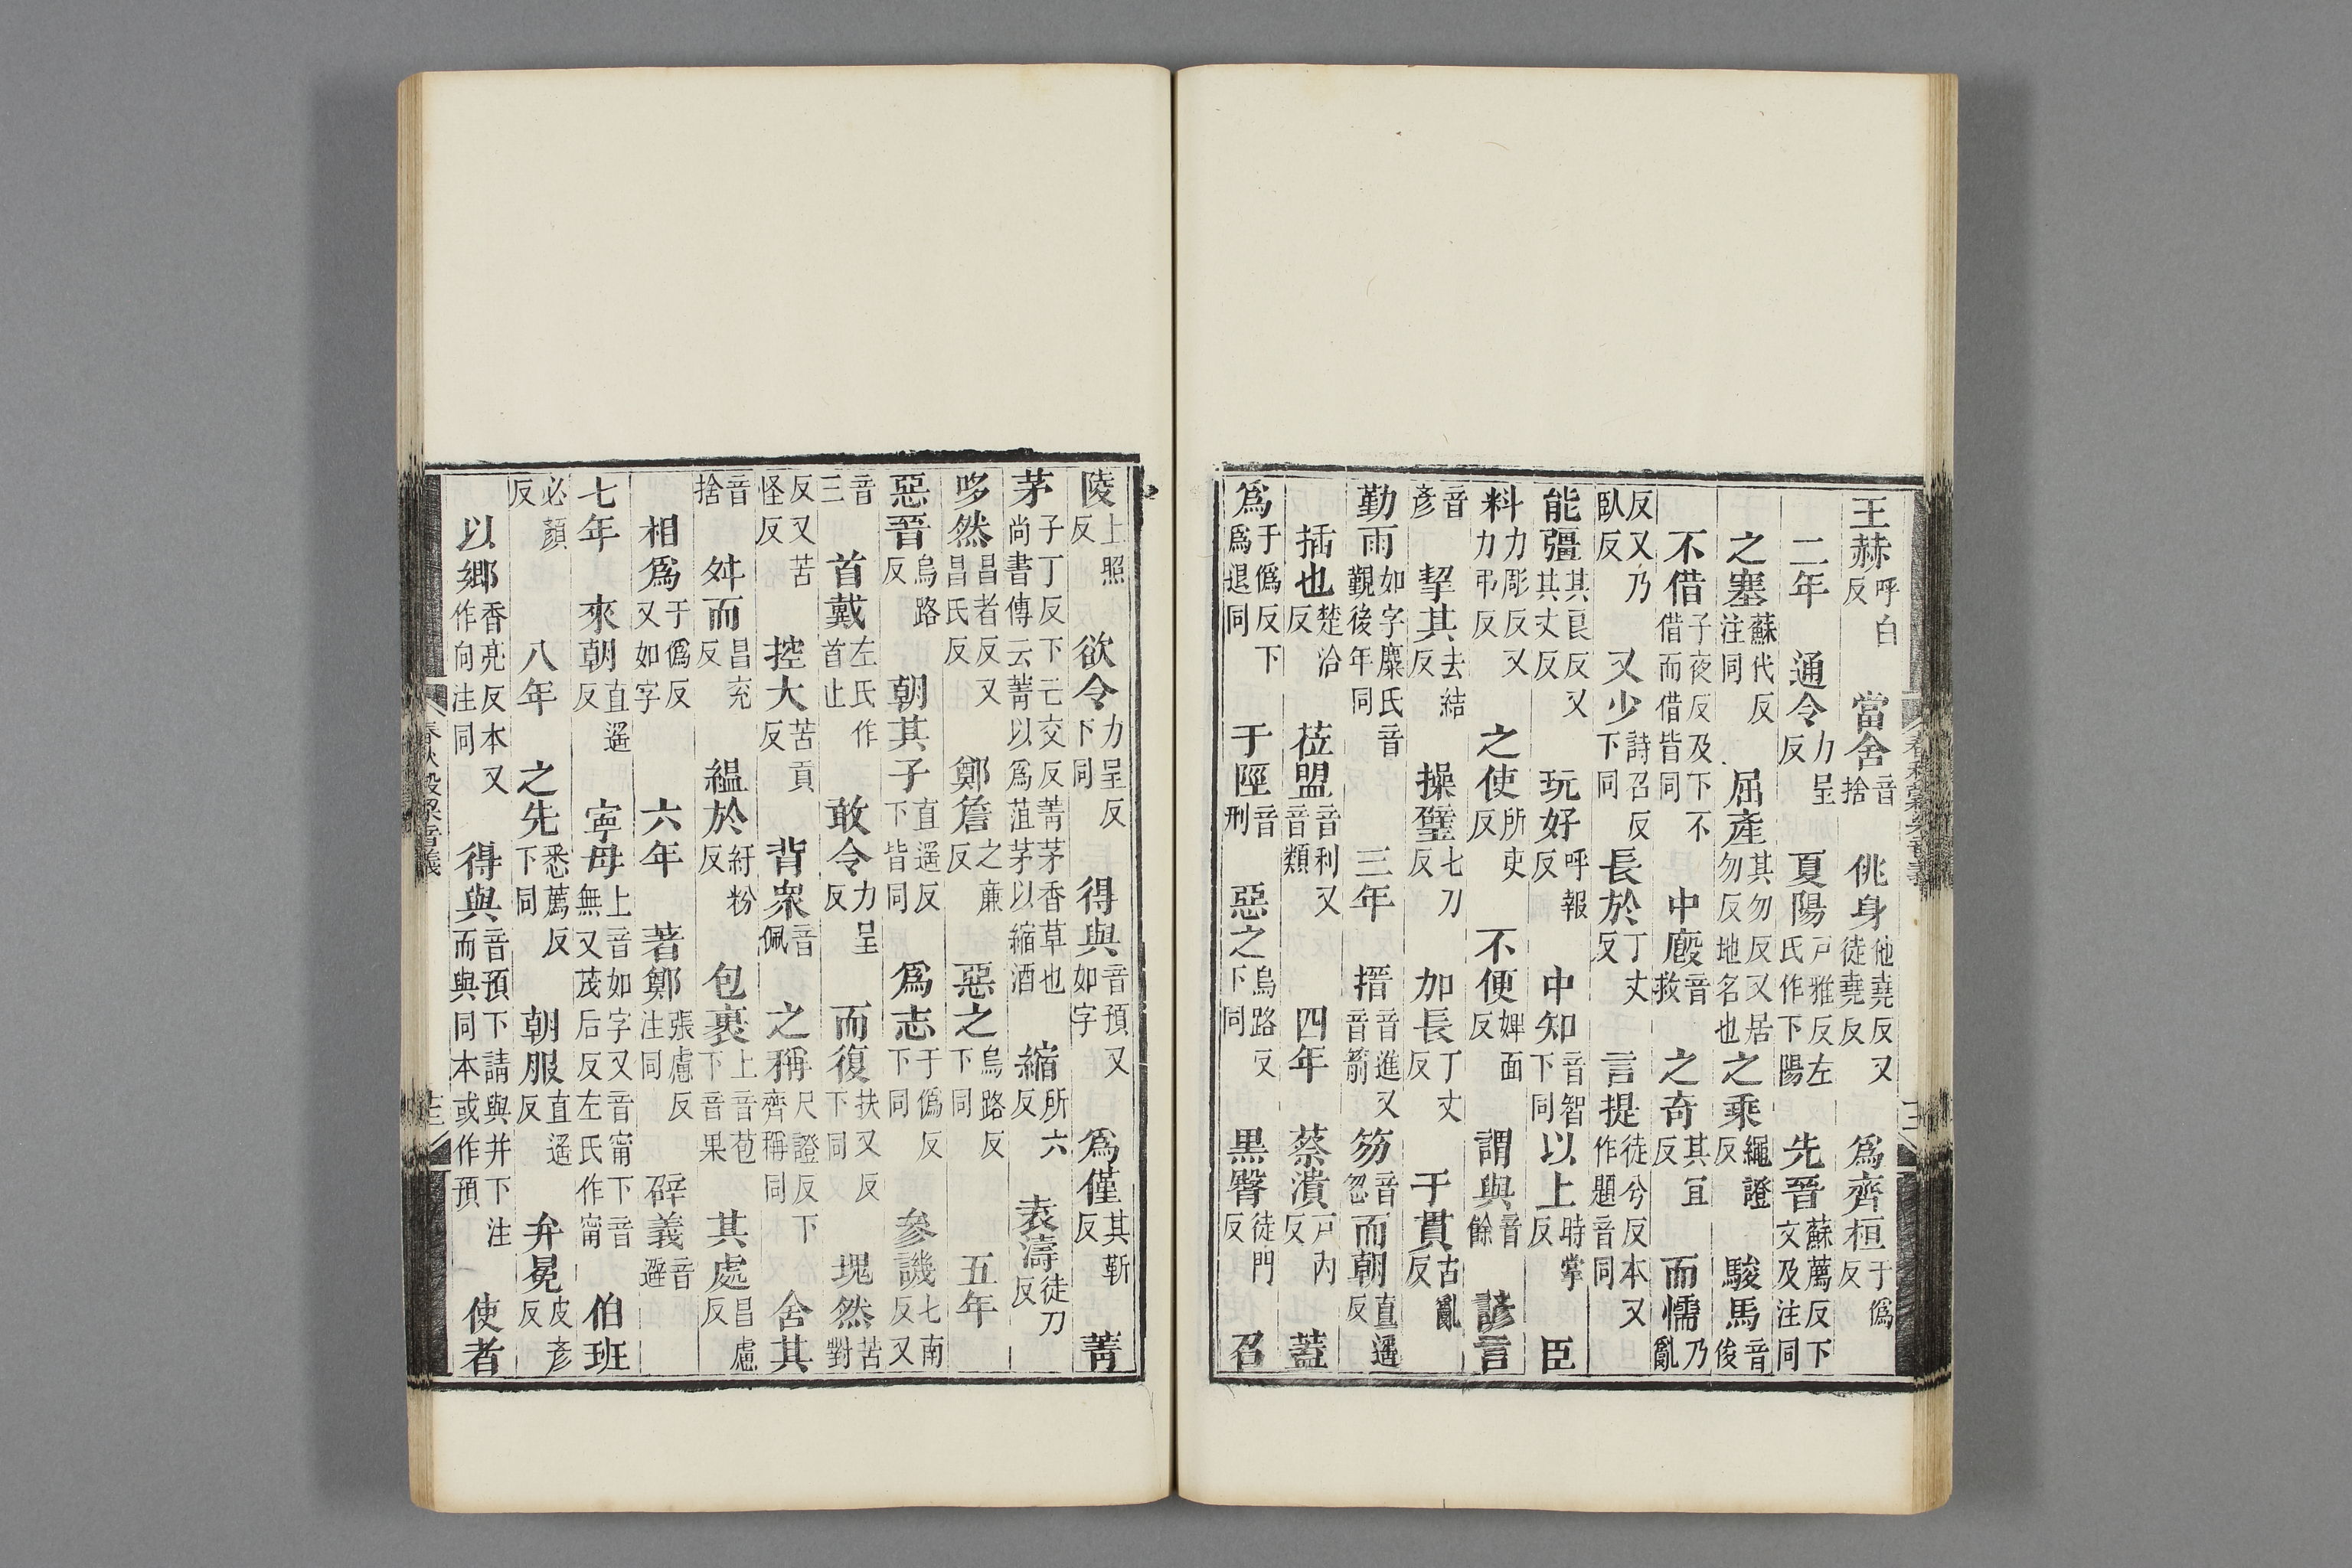 王赫呼白反　當舍音捨　佻身他堯反又徒堯反　爲齊桓于僞反
二年　通令力呈反　夏陽戸雅反左氏作下陽　先晉蘇薦反下文及注同
之塞蘇代反注同　屈產其勿反又居勿反地名也　之乘繩證反　駿馬音俊
不借子夜反及下不借而借借皆同　中廏音救　之奇其宜反　而懦乃亂
反又乃臥反　又少詩召反下同　長於丁丈反　言提徒兮反本又作題音同
能彊其良反又其丈反　玩好呼報反　中知音智下同　以上時掌反　臣
料力彫反又力弔反　之使所吏反　不便婢面反　謂與音餘　諺言
音彥　挈其去結反　操璧七刀反　加長丁丈反　于貫古亂反
勤雨如字麋氏音覲後年同　三年　搢音進又音箭　笏音忽　而朝直遥反
插也楚洽反　莅盟音利又音類　四年　蔡潰戸內反　蓋
爲于僞反下爲退同　于陘音刑　惡之烏路反下同　黑臀徒門反　召
陵上照反　欲令力呈反下同　得與音預又如字　爲僅其靳反　菁
茅子丁反下亡交反菁茅香草也尚書傳云菁以爲菹茅以縮酒　縮所六反　袁濤徒刀反
哆然昌者反又昌氏反　鄭詹之廉反　惡之烏路反下同　五年
惡晉烏路反　朝其子直遥反下皆同　爲志于僞反下同　參譏七南反又
音三　首戴左氏作首止　敢令力呈反　而復扶又反下同　塊然苦對
反又苦怪反　控大苦貢反　背衆音佩　之稱尺證反下齊稱同　舍其
音捨　舛而昌兖反　縕於紆粉反　包裹上音苞下音果　其處昌慮反
相爲于僞反又如字　六年　著鄭張慮反注同　辟義音避
七年　來朝直遥反　寗母上音如字又音甯下音無又茂后反左氏作甯　伯班
必顏反　八年　之先悉薦反下同　朝服直遥反　弁冕皮彥反
以鄉香亮反本又作向注同　得與音預下請與并下注而與同本或作預　使者
春秋穀梁音義